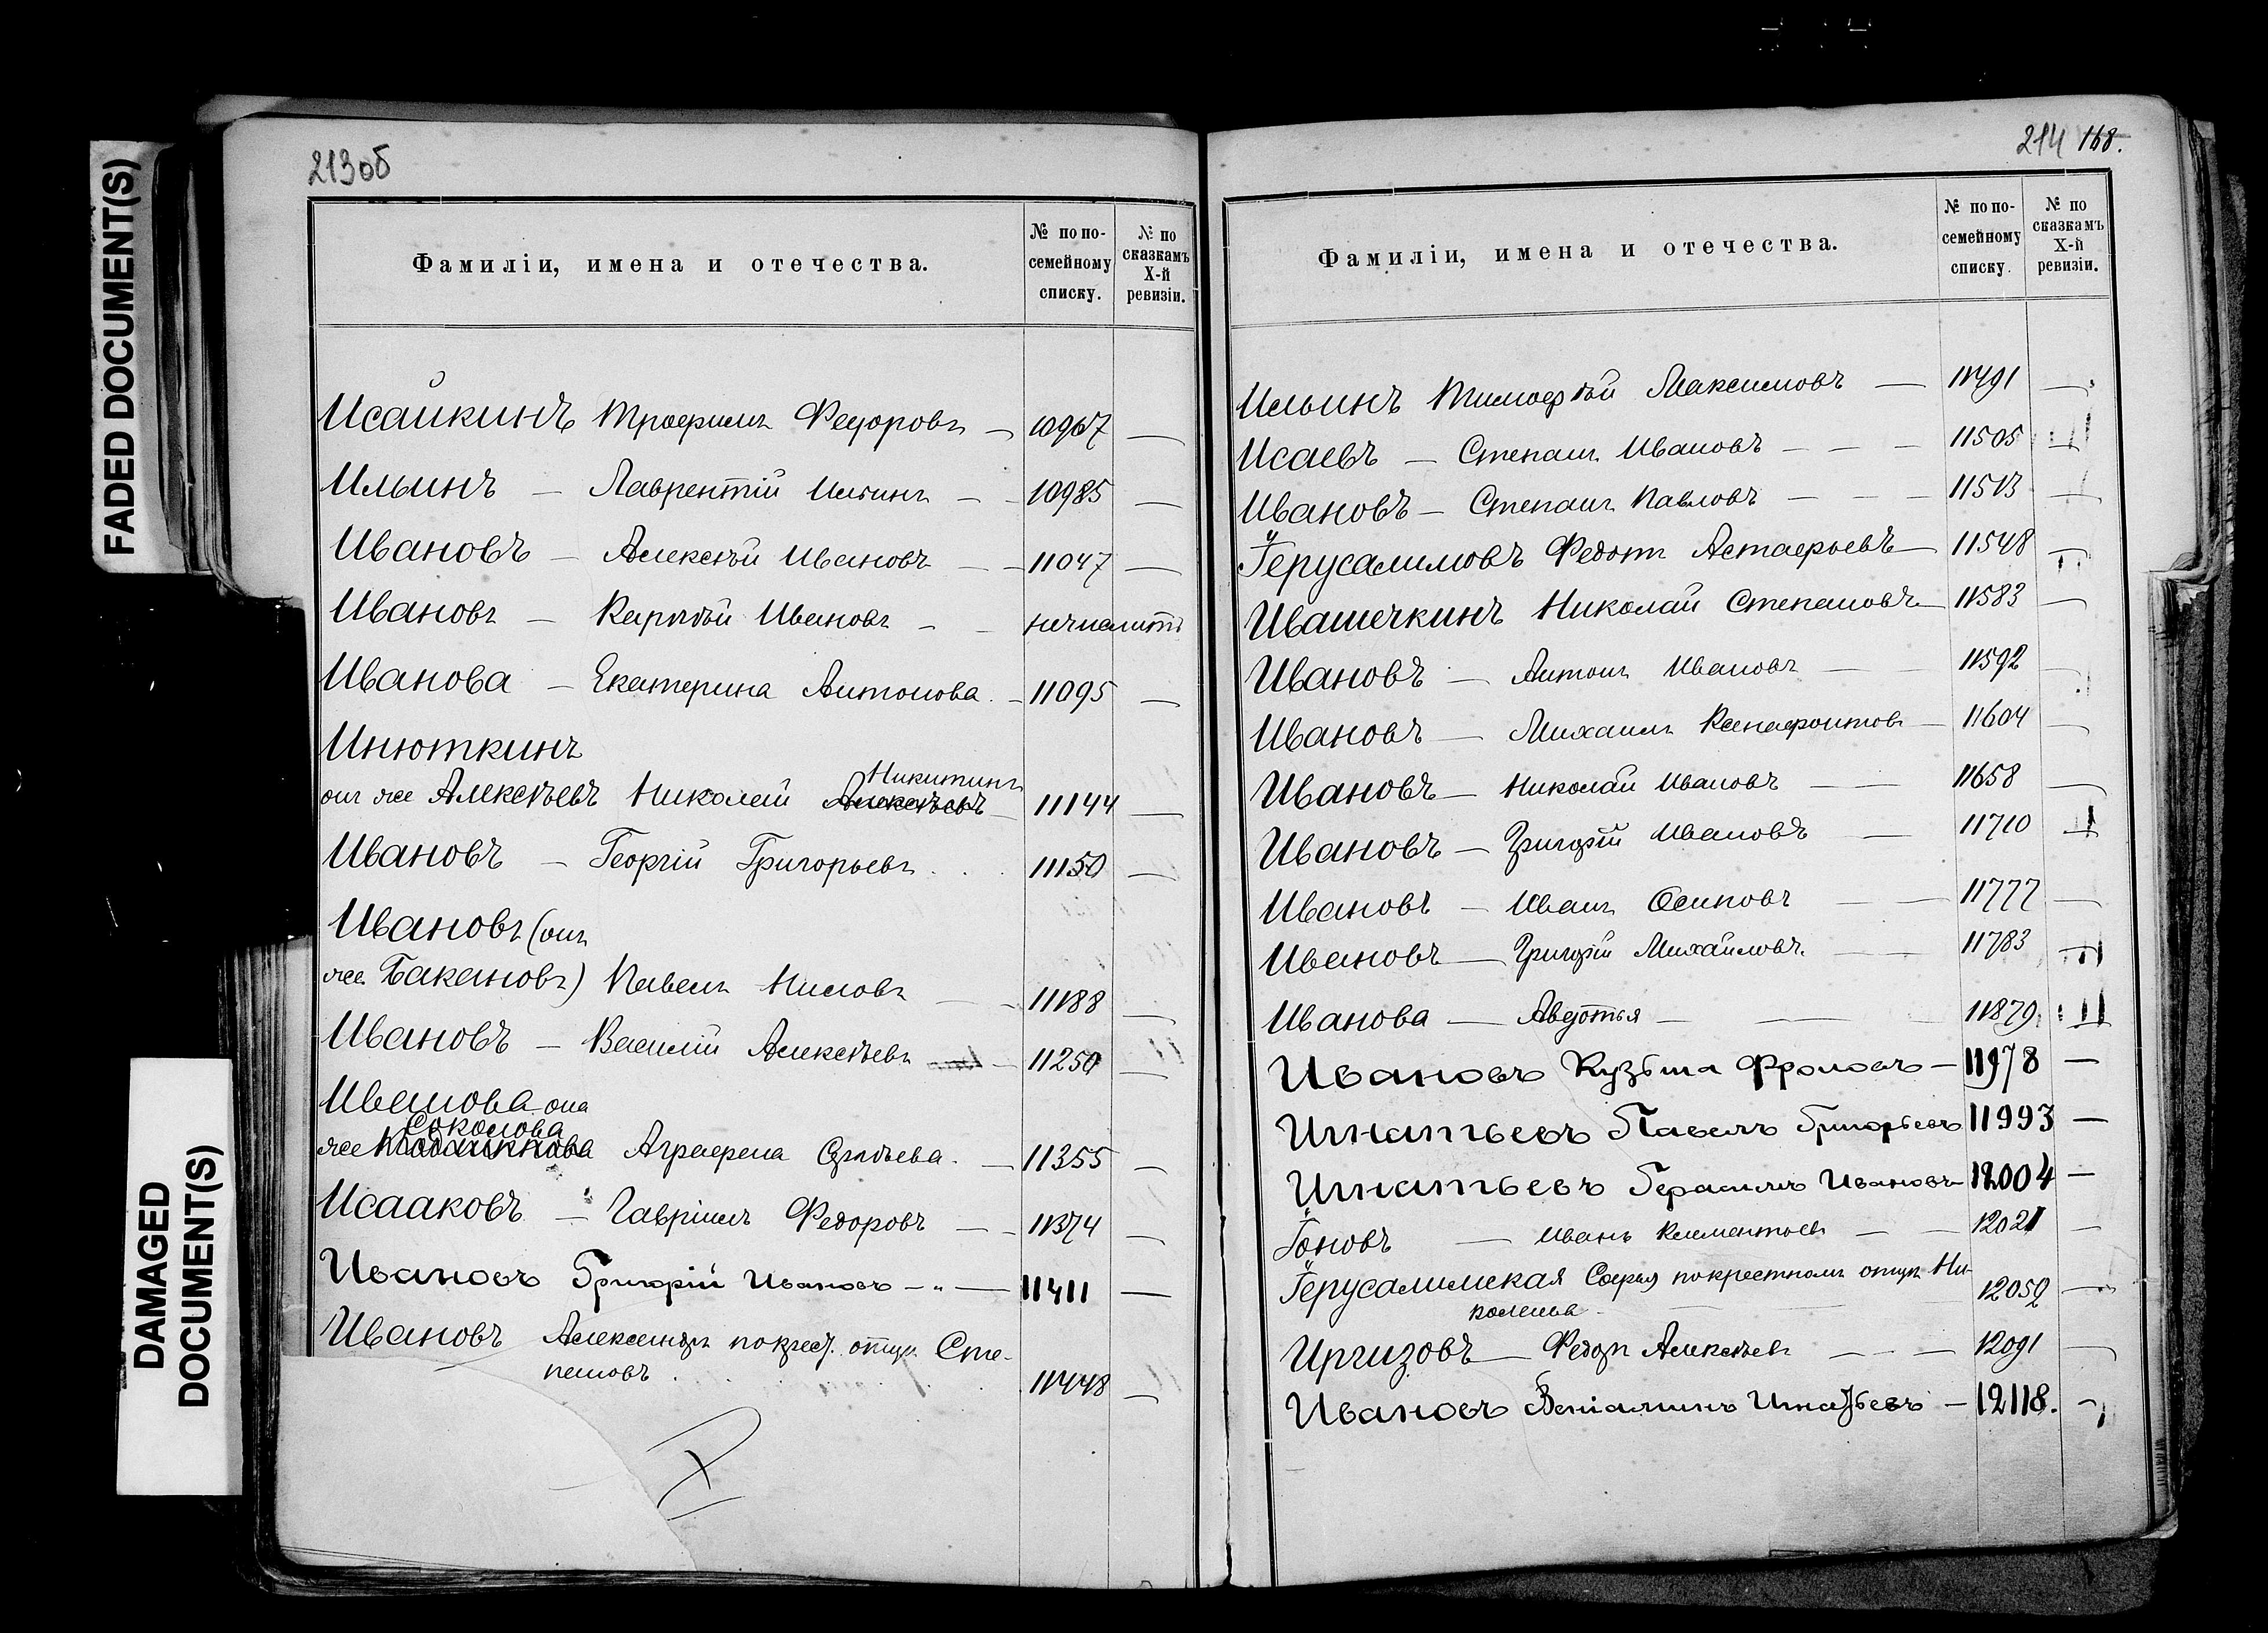 FADED DOCUMENT(S)
DAMAGED DOCUMENT(S)
213об
Фамиліи, имена и отечества. № по по-семейному списку. № по сказкамъ X-й ревизіи.
Исайкинъ Трофимъ Федоровъ — 10967 —
Ильинъ — Лаврентій Ильинъ — — 10985 —
Ивановъ — Алексѣй Ивановъ — — 11047 —
Ивановъ — Ивановъ — —
Иванова — Екатерина Антонова. — 11095 —
Инюткинъ
онъ же Алексѣевъ Николай Алексѣевъ Никитинъ — 11144 —
Ивановъ — Георгій Григорьевъ . . . 11150 —
Ивановъ (онъ
же Бакановъ) Павелъ Ниловъ — — 11188 —
Ивановъ — Василій Алексѣевъ — 11250 —
Иванова она
Соколова
же Аграфена . — 11355 —
Исааковъ — Гавріилъ Федоровъ — — 11374 —
Ивановъ Григорій Ивановъ — „ — 11411 —
Ивановъ Александръ покрест. отцу Сте-
пановъ . . . . 11448 —
214 168.
Фамиліи, имена и отечества. № по по-семейному списку. № по сказкамъ X-й ревизіи.
Ильинъ Тимофѣй Максимовъ — 11491 —
Исаевъ — Степанъ Ивановъ — — — 11505 —
Ивановъ — Степанъ Павловъ — — — 11513 —
Іерусалимовъ Федотъ Астафьевъ — 11548 —
Ивашечкинъ Николай Степановъ — 11583 —
Ивановъ — Антонъ Ивановъ — — 11592 —
Ивановъ — Михаилъ Ксенофонтовъ — 11604 —
Ивановъ — Николай Ивановъ — — 11658 —
Ивановъ — Григорій Ивановъ — — 11710 —
Ивановъ — Иванъ Осиповъ — — 11777 —
Ивановъ — Григорій Михайловъ. — — 11783 —
Иванова — Авдотья — — — 11879 —
Ивановъ Кузьма Фроловъ — 11978 —
Игнатьевъ Павелъ Григорьевъ 11993 —
Игнатьевъ Герасимъ Ивановъ 12004 —
Іоновъ — Иванъ Климентьевъ — — 12021 —
Іерусалимская Софья покрестному отцу Ни-
колаева — — 12052 —
Иргизовъ — Федоръ Алексѣевъ — — — 12091 —
Ивановъ Веніаминъ Игнатьевъ — 12118. —